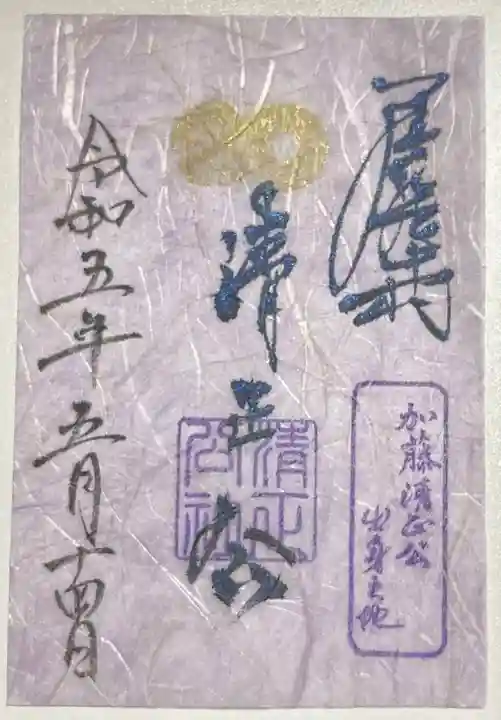 清正公
清正
公社
加藤清正公
出身之地
令和五年五月十四日